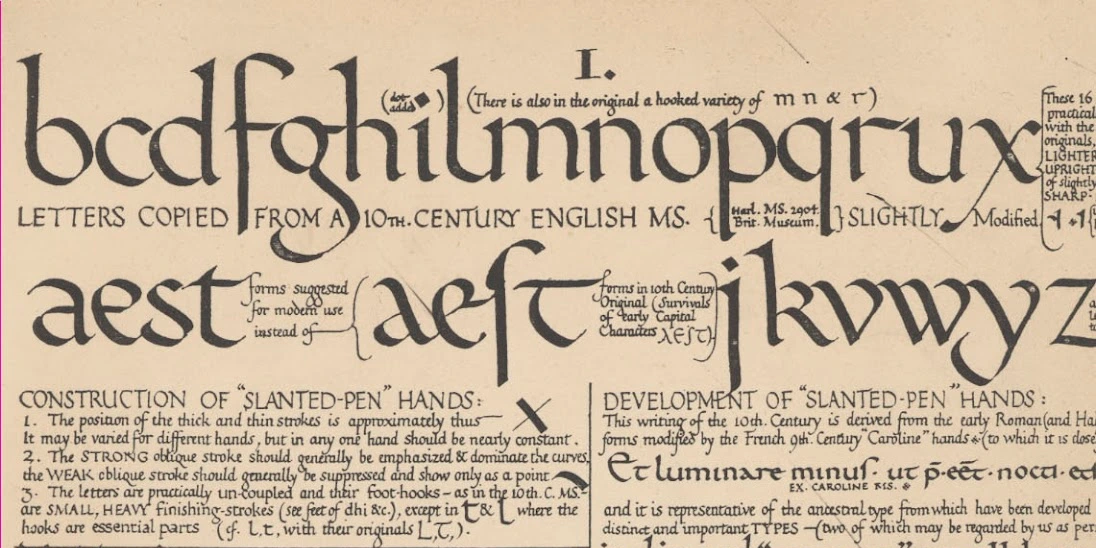 1.
(dot added ◆) (There is also in the original a hooked variety of m n & r)
bcdfghilmnopqrux
These 16
practical
with the
originals,
LIGHTER
UPRIGHT
of slightly
SHARP-
LETTERS COPIED FROM A 10TH. CENTURY ENGLISH MS. { Harl. MS. 2904. Brit. Museum. } SLIGHTLY Modified
aest
forms suggested
for modern use
instead of
aeſt
forms in 10th Century
Original (Survivals
of early Capital
Characters AEST)
jkvwyz
CONSTRUCTION OF "SLANTED-PEN" HANDS:
1. The position of the thick and thin strokes is approximately thus
It may be varied for different hands, but in any one hand should be nearly constant.
2. The STRONG oblique stroke should generally be emphasized & dominate the curves,
the WEAK oblique stroke should generally be suppressed and show only as a point
3. The letters are practically un-coupled and their foot-hooks—as in the 10th. C. MS.—
are SMALL, HEAVY finishing-strokes (see feet of dhi &c.), except in t & l where the
hooks are essential parts (cf. l, t, with their originals L, T,).
DEVELOPMENT OF "SLANTED-PEN" HANDS:
This writing of the 10th. Century is derived from the early Roman (and Ha
forms modified by the French 9th. Century "Caroline" hands * (to which it is close
Et luminare minuſ· ut p̄·eēt·nocti·
EX. CAROLINE MS. *
and it is representative of the ancestral type from which have been developed
distinct and important TYPES—(two of which may be regarded by us as per